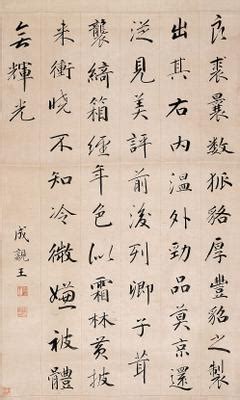 良裘曩数狐貉厚豐貂之製
出其右内温外勁品莫京還
從見美評前後列卿子茸
襲綺箱經年色似霜林黄披
来衝晓不知冷微嫌被體
無輝光
成親王